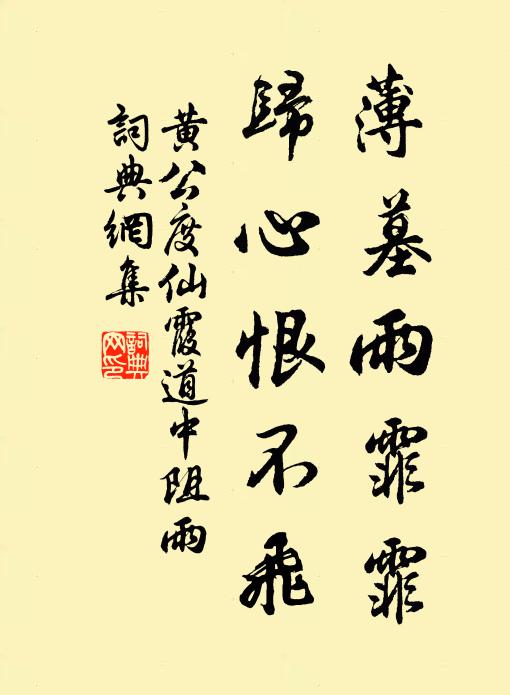 薄墓雨霏霏
歸心恨不飛
黄公度仙霞道中阻雨
詞典網集
詞典
网印